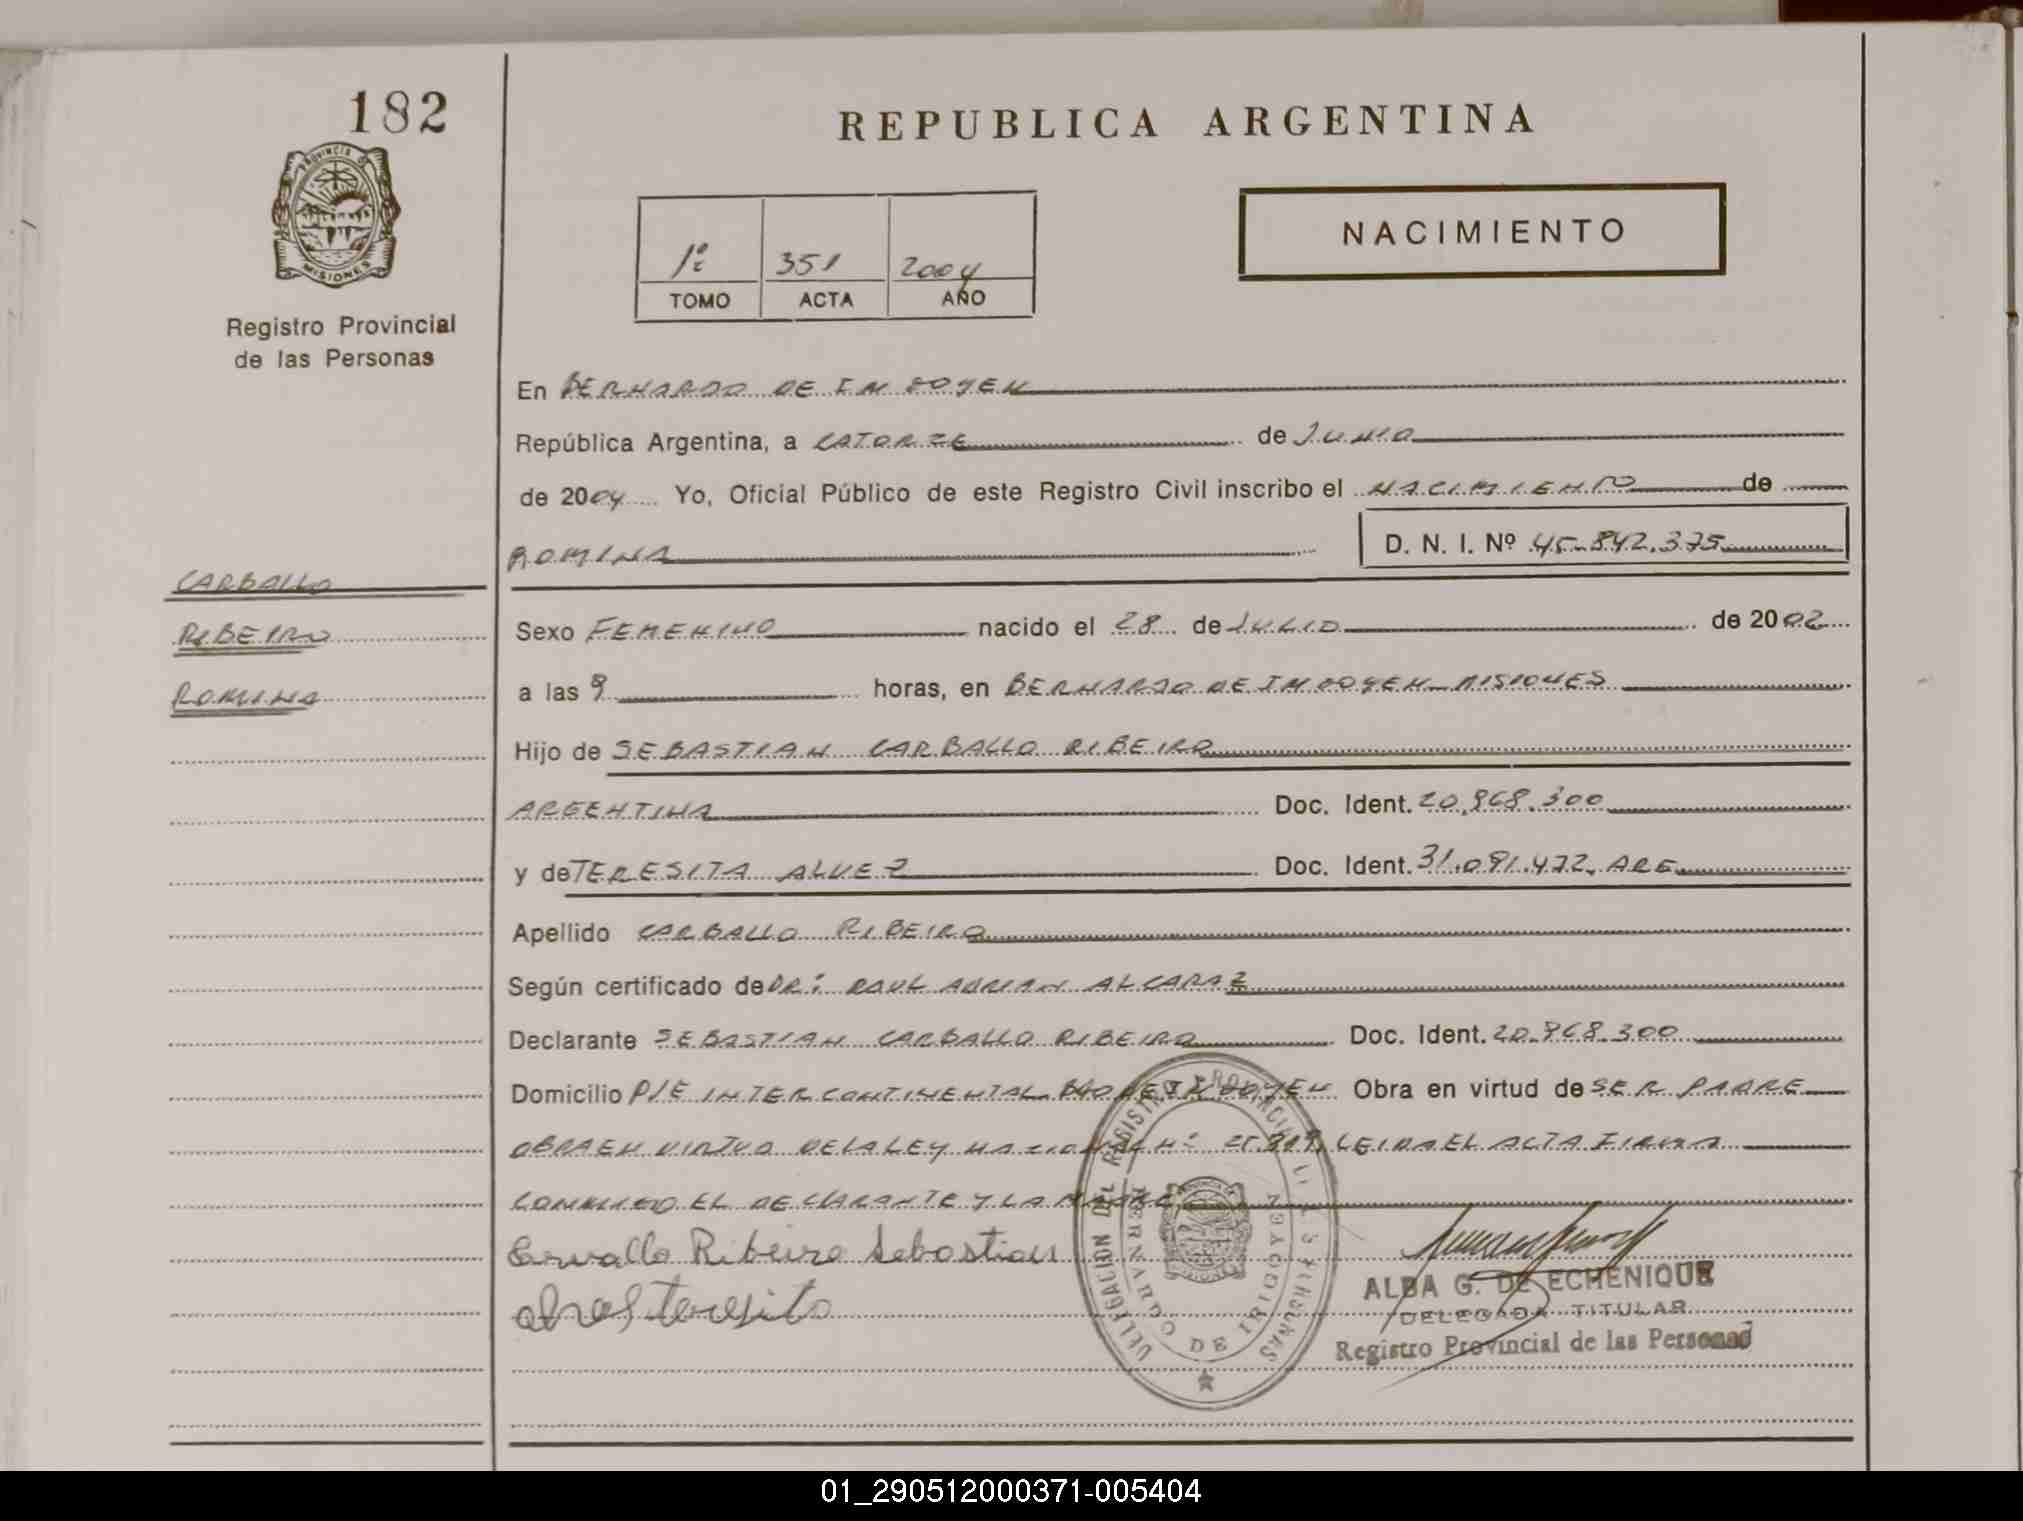 182
REPUBLICA ARGENTINA
PROVINCIA DE
MISIONES
Registro Provincial
de las Personas
1º 351 2004
TOMO ACTA AÑO
NACIMIENTO
En BERNARDO DE IRIGOYEN
República Argentina, a CATORZE de JUNIO
de 2004 Yo, Oficial Público de este Registro Civil inscribo el NACIMIENTO de
ROMINA D. N. I. Nº 45.842.375
CARBALLO
RIBEIRO
ROMINA
Sexo FEMENINO nacido el 28 de JULIO de 2002
a las 9 horas, en BERNARDO DE IRIGOYEN MISIONES
Hijo de SEBASTIAN CARBALLO RIBEIRO
ARGENTINA Doc. Ident. 20.868.300
y de TERESITA ALVEZ Doc. Ident. 31.091.472. ARG
Apellido CARBALLO RIBEIRO
Según certificado de DR: RAUL ADRIAN ALCARAZ
Declarante SEBASTIAN CARBALLO RIBEIRO Doc. Ident. 20.868.300
Domicilio PJE INTERCONTINENTAL BDO DE IRIGOYEN Obra en virtud de SER PADRE
OBRA EN VIRTUD DE LA LEY NACIONAL Nº 25.819, LEIDA EL ACTA FIRMA
CONMIGO EL DECLARANTE Y LA MADRE
Carvallo Ribeiro Sebastian
Alves teresita
DELEGACION DEL REGISTRO PROVINCIAL DE LAS PERSONAS
BERNARDO DE IRIGOYEN
ALBA G. DE ECHENIQUE
DELEGADA TITULAR
Registro Provincial de las Personas
01_290512000371-005404